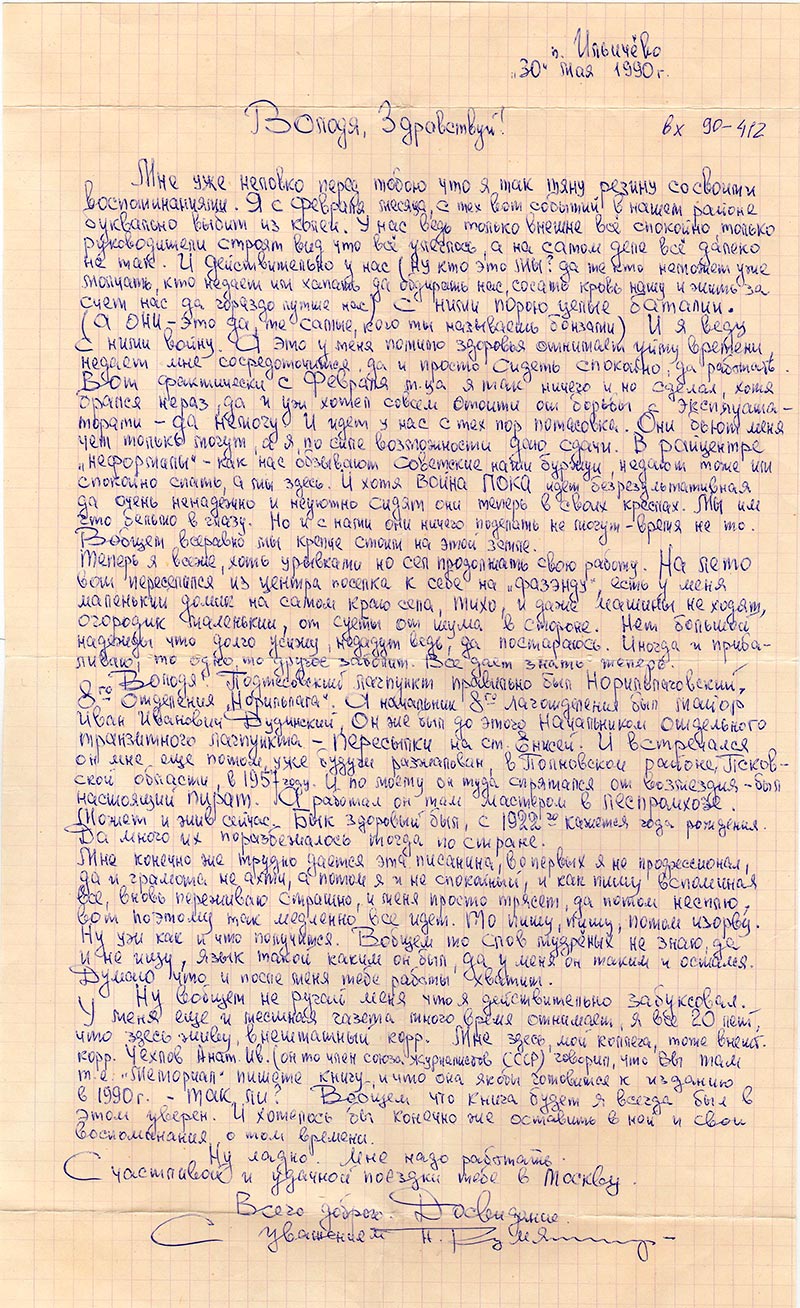 п. Ильичёво
"30" мая 1990г.
Володя, Здравствуй!
вх 90-412
Мне уже неловко перед тобою что я так тяну резину со своими
воспоминаниями. Я с Февраля месяца, с тех вот событий в нашем районе
буквально выбит из колеи. У нас ведь только внешне всё спокойно, только
руководители строят вид что всё улеглось, а на самом деле всё далеко
не так. И действительно у нас (ну кто это мы? да те кто неможет уже
молчать, кто недает им хапать да обдирать нас, сосать кровь нашу и жить за
счет нас да гораздо лучше нас) с ними порою целые баталии.
(А они – это да, те самые, кого ты называешь бонзами) И я веду
с ними войну. А это у меня помимо здоровья отнимает уйму времени
недает мне сосредоточится, да и просто сидеть спокойно, да работать.
Вот фактически с Февраля м-ца я так ничего и не сделал, хотя
брался нераз, да и уж хотел совсем отойти от борьбы с эксплуата-
торами – да немогу. И идет у нас с тех пор потасовка. Они бьют меня
чем только могут, а я, по силе возможности даю сдачи. В райцентре
„неформалы" - как нас обзывают советские наши буржуи, недают тоже им
спокойно спать, а мы здесь. И хотя война пока идет безрезультативная
да очень ненадежно и неуютно сидят они теперь в своих креслах. Мы им
что бельмо в глазу. Но и с нами они ничего поделать не могут – время не то.
Вобщем всеравно мы крепче стоим на этой земле.
Теперь я всеже, хоть урывками но сел продолжать свою работу. На лето
вот переселился из центра поселка к себе на „фазэнду", есть у меня
маленький домик на самом краю села, тихо, и даже машины не ходят,
огородик маленький, от суеты от шума в стороне. Нет большой
надежды что долго усижу, недадут ведь, да постараюсь. Иногда и приба-
ливаю, то одно, то другое заболит. Все дает знать теперь.
Володя! Подтесовский лагпункт правильно был Норильлаговский,
8го Отделения „Норильлага". А начальник 8го лаготделения был майор
Иван Иванович Дудинский, Он же был до этого Начальником отдельного
транзитного лагпункта – Пересылки на ст. Енисей. И встречался
он мне еще потом, уже будучи разжалован, в Полновском районе, Псков-
ской области, в 1957 году. И по моему он туда спрятался от возмездия – был
настоящий пират. А работал он там мастером в леспромхозе.
Может и жив сейчас. Бык здоровый был, с 1922го кажется года рождения.
Да много их поразбежалось тогда по стране.
Мне конечно же трудно дается эта писанина, во первых я не профессионал,
да и грамота не ахти, а потом я и не спокойный, и как пишу вспоминая
все, вновь переживаю страшно, и меня просто трясет, да потом несплю,
вот поэтому так медленно все идет. То пишу, пишу, потом изорву.
Ну уж как и что получится. Вобщем то слов мудрёных не знаю, да
и не ищу, язык такой каким он был, да у меня он таким и остался.
Думаю что и после меня тебе работы хватит.
Ну вобщем не ругай меня что я действительно забуксовал.
У меня еще и местная газета много время отнимает, я все 20 лет,
что здесь живу, внештатный корр. Мне здесь, мой коллега, тоже внешт.
корр. Чехлов Анат. Ив. (он то член союза журналистов СССР) говорил, что Вы там
т.е. „Мемориал" пишете книгу, и что она якобы готовится к изданию
в 1990г. – так ли? Вобщем что книга будет я всегда был в
этом уверен. И хотелось бы конечно же оставить в ней и свои
воспоминания, о том времени.
Ну ладно. Мне надо работать.
Счастливой и удачной поездки тебе в Москву.
Всего доброго. Досвидание.
С уважением Н.